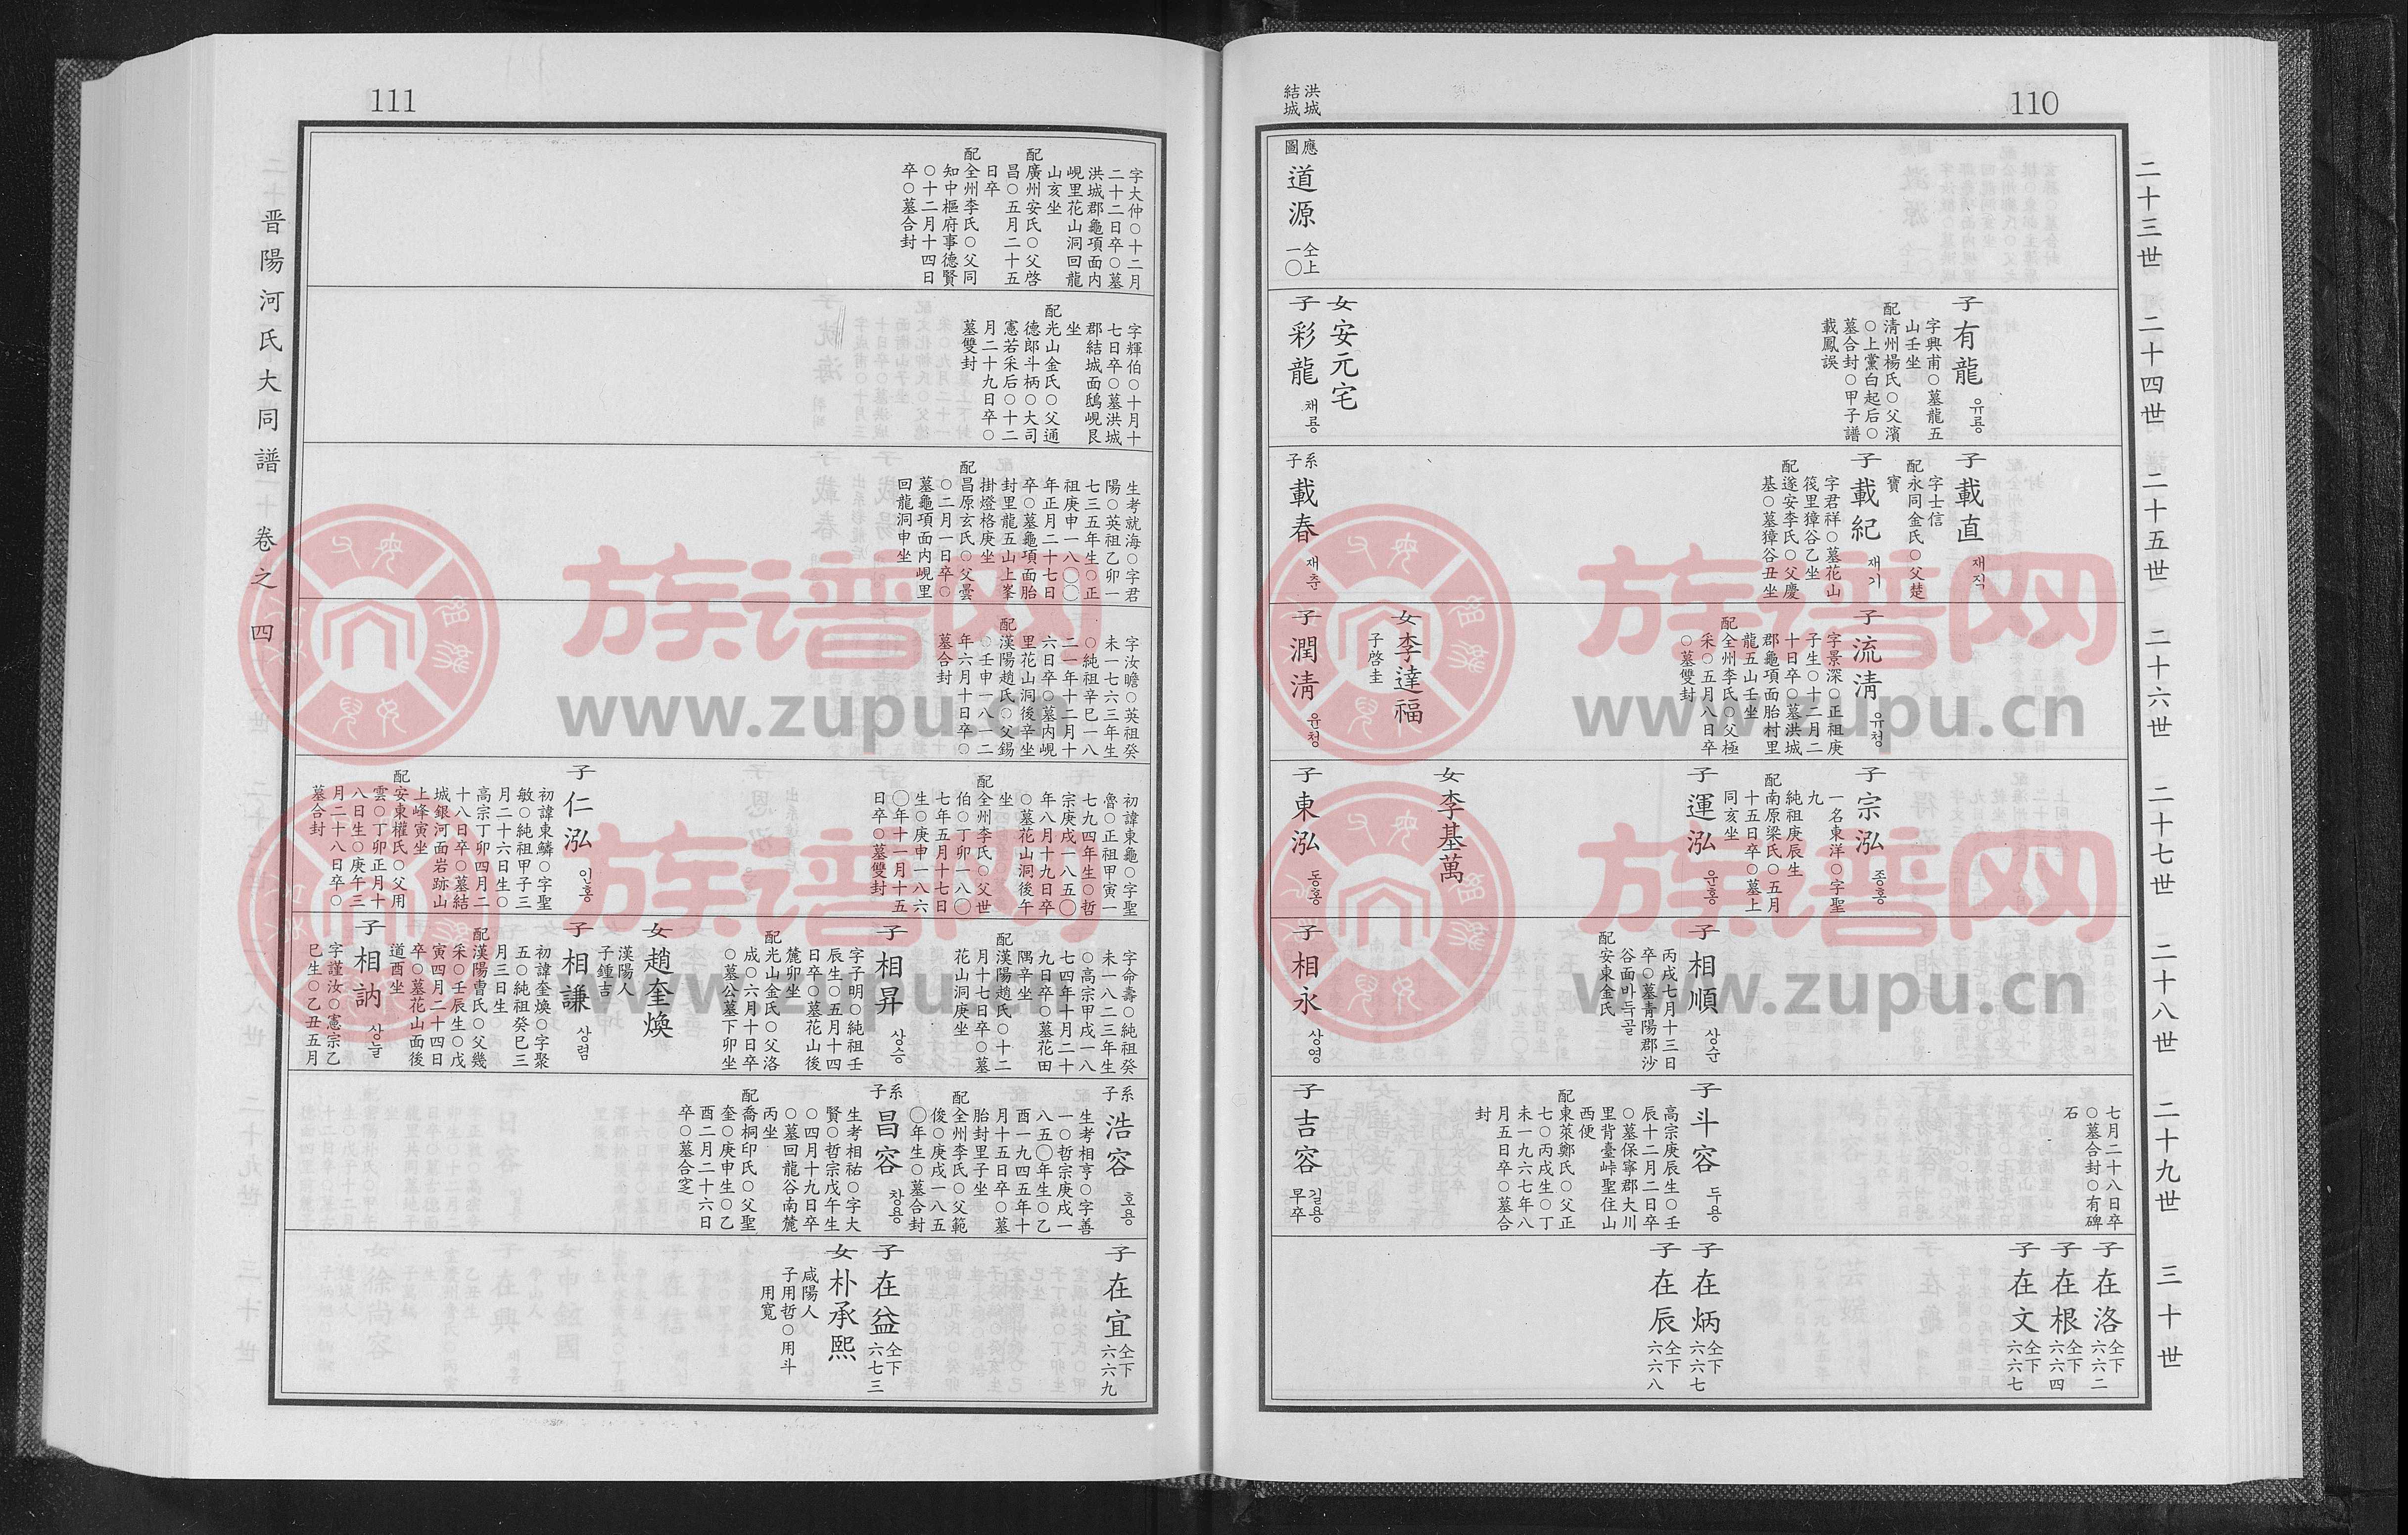 110
洪城
結城
二十三世
二十四世
二十五世
二十六世
二十七世
二十八世
二十九世
三十世
應圖
道源
仝上一〇
子有龍 유룡
字興甫○墓龍五
山壬坐
配清州楊氏○父濱
○上黨白起后○
墓合封○甲子譜
載鳳誤
女安元宅
子彩龍 채룡
子載直 재직
字士信
配永同金氏○父楚
寶
子載紀 재기
字君祥○墓花山
筏里獐谷乙坐
配遂安李氏○父慶
基○墓獐谷丑坐
系子載春 재춘
子流淸 유청
字景深○正祖庚
子生○十二月二
十日卒○墓洪城
郡龜項面胎村里
龍五山壬坐
配全州李氏○父極
采○五月八日卒
○墓雙封
女李達福
子啓圭
子潤淸 윤청
子宗泓 종홍
一名東洋○字聖
九
子運泓 운홍
純祖庚辰生
配南原梁氏○五月
十五日卒○墓上
同亥坐
女李基萬
子東泓 동홍
子相順 상순
丙戌七月十三日
卒○墓靑陽郡沙
谷面바득골
配安東金氏
子相永 상영
七月二十八日卒
○墓合封○有碑
石
子斗容 두용
高宗庚辰生○壬
辰十二月二日卒
○墓保寧郡大川
里背臺峙聖住山
西便
配東萊鄭氏○父正
七○丙戌生○丁
未一九六七年八
月五日卒○墓合
封
子吉容 길용
早卒
子在洛 仝下六六二
子在根 仝下六六四
子在文 仝下六六七
子在炳 仝下六六七
子在辰 仝下六六八
111
晋陽河氏大同譜 卷之四
字大仲○十二月
二十二日卒○墓
洪城郡龜項面内
峴里花山洞回龍
山亥坐
配廣州安氏○父啓
昌○五月二十五
日卒
配全州李氏○父同
知中樞府事德賢
○十二月十四日
卒○墓合封
字輝伯○十月十
七日卒○墓洪城
郡結城面鴟峴艮
坐
配光山金氏○父通
德郎斗柄○大司
憲若采后○十二
月二十九日卒○
墓雙封
生考就海○字君
陽○英祖乙卯一
七三五年生○正
祖庚申一八〇〇
年正月二十七日
卒○墓龜項面胎
封里龍五山上峯
掛燈格庚坐
配昌原玄氏○父雲
○二月一日卒○
墓龜項面内峴里
回龍洞申坐
字汝瞻○英祖癸
未一七六三年生
○純祖辛巳一八
二一年十二月十
六日卒○墓内峴
里花山洞後辛坐
配漢陽趙氏○父錫
○壬申一八一二
年六月十日卒○
墓合封
初諱東龜○字聖
魯○正祖甲寅一
七九四年生○哲
宗庚戌一八五〇
年八月十九日卒
○墓花山洞後午
坐
配全州李氏○父世
伯○丁卯一八〇
七年五月十七日
生○庚申一八六
〇年十一月十五
日卒○墓雙封
子仁泓 인홍
初諱東鱗○字聖
敏○純祖甲子三
月二十六日生○
高宗丁卯四月二
十八日卒○墓結
城銀河面岩跡山
上峰寅坐
配安東權氏○父用
雲○丁卯正月十
八日生○庚午三
月二十八日卒○
墓合封
字命壽○純祖癸
未一八二三年生
○高宗甲戌一八
七四年十月二十
九日卒○墓花田
隅辛坐
配漢陽趙氏○十二
月十七日卒○墓
花山洞庚坐
子相昇 상승
字子明○純祖壬
辰生○五月十四
日卒○墓花山後
麓卯坐
配光山金氏○父洛
成○六月十日卒
○墓公墓下卯坐
女趙奎煥
漢陽人
子鍾吉
子相謙 상렴
初諱奎煥○字聚
五○純祖癸巳三
月三日生
配漢陽曹氏○父幾
采○壬辰生○戊
寅四月二十四日
卒○墓花山面後
道酉坐
子相訥 상눌
字謹汝○憲宗乙
巳生○乙丑五月
系子浩容 호용
生考相亨○字善
一○哲宗庚戌一
八五〇年生○乙
酉一九四五年十
月十五日卒○墓
胎封里子坐
配全州李氏○父範
俊○庚戌一八五
〇年生○墓合封
系子昌容 창용
生考相祐○字大
賢○哲宗戊午生
○四月十九日卒
○墓回龍谷南麓
丙坐
配喬桐印氏○父聖
奎○庚申生○乙
酉二月二十六日
卒○墓合窆
子在宜 仝下六六九
子在益 仝下六七三
女朴承熙
咸陽人
子用哲○用斗
用寬
族谱网
www.zupu.cn
族谱网
www.zupu.cn
族谱网
www.zupu.cn
族谱网
www.zupu.cn